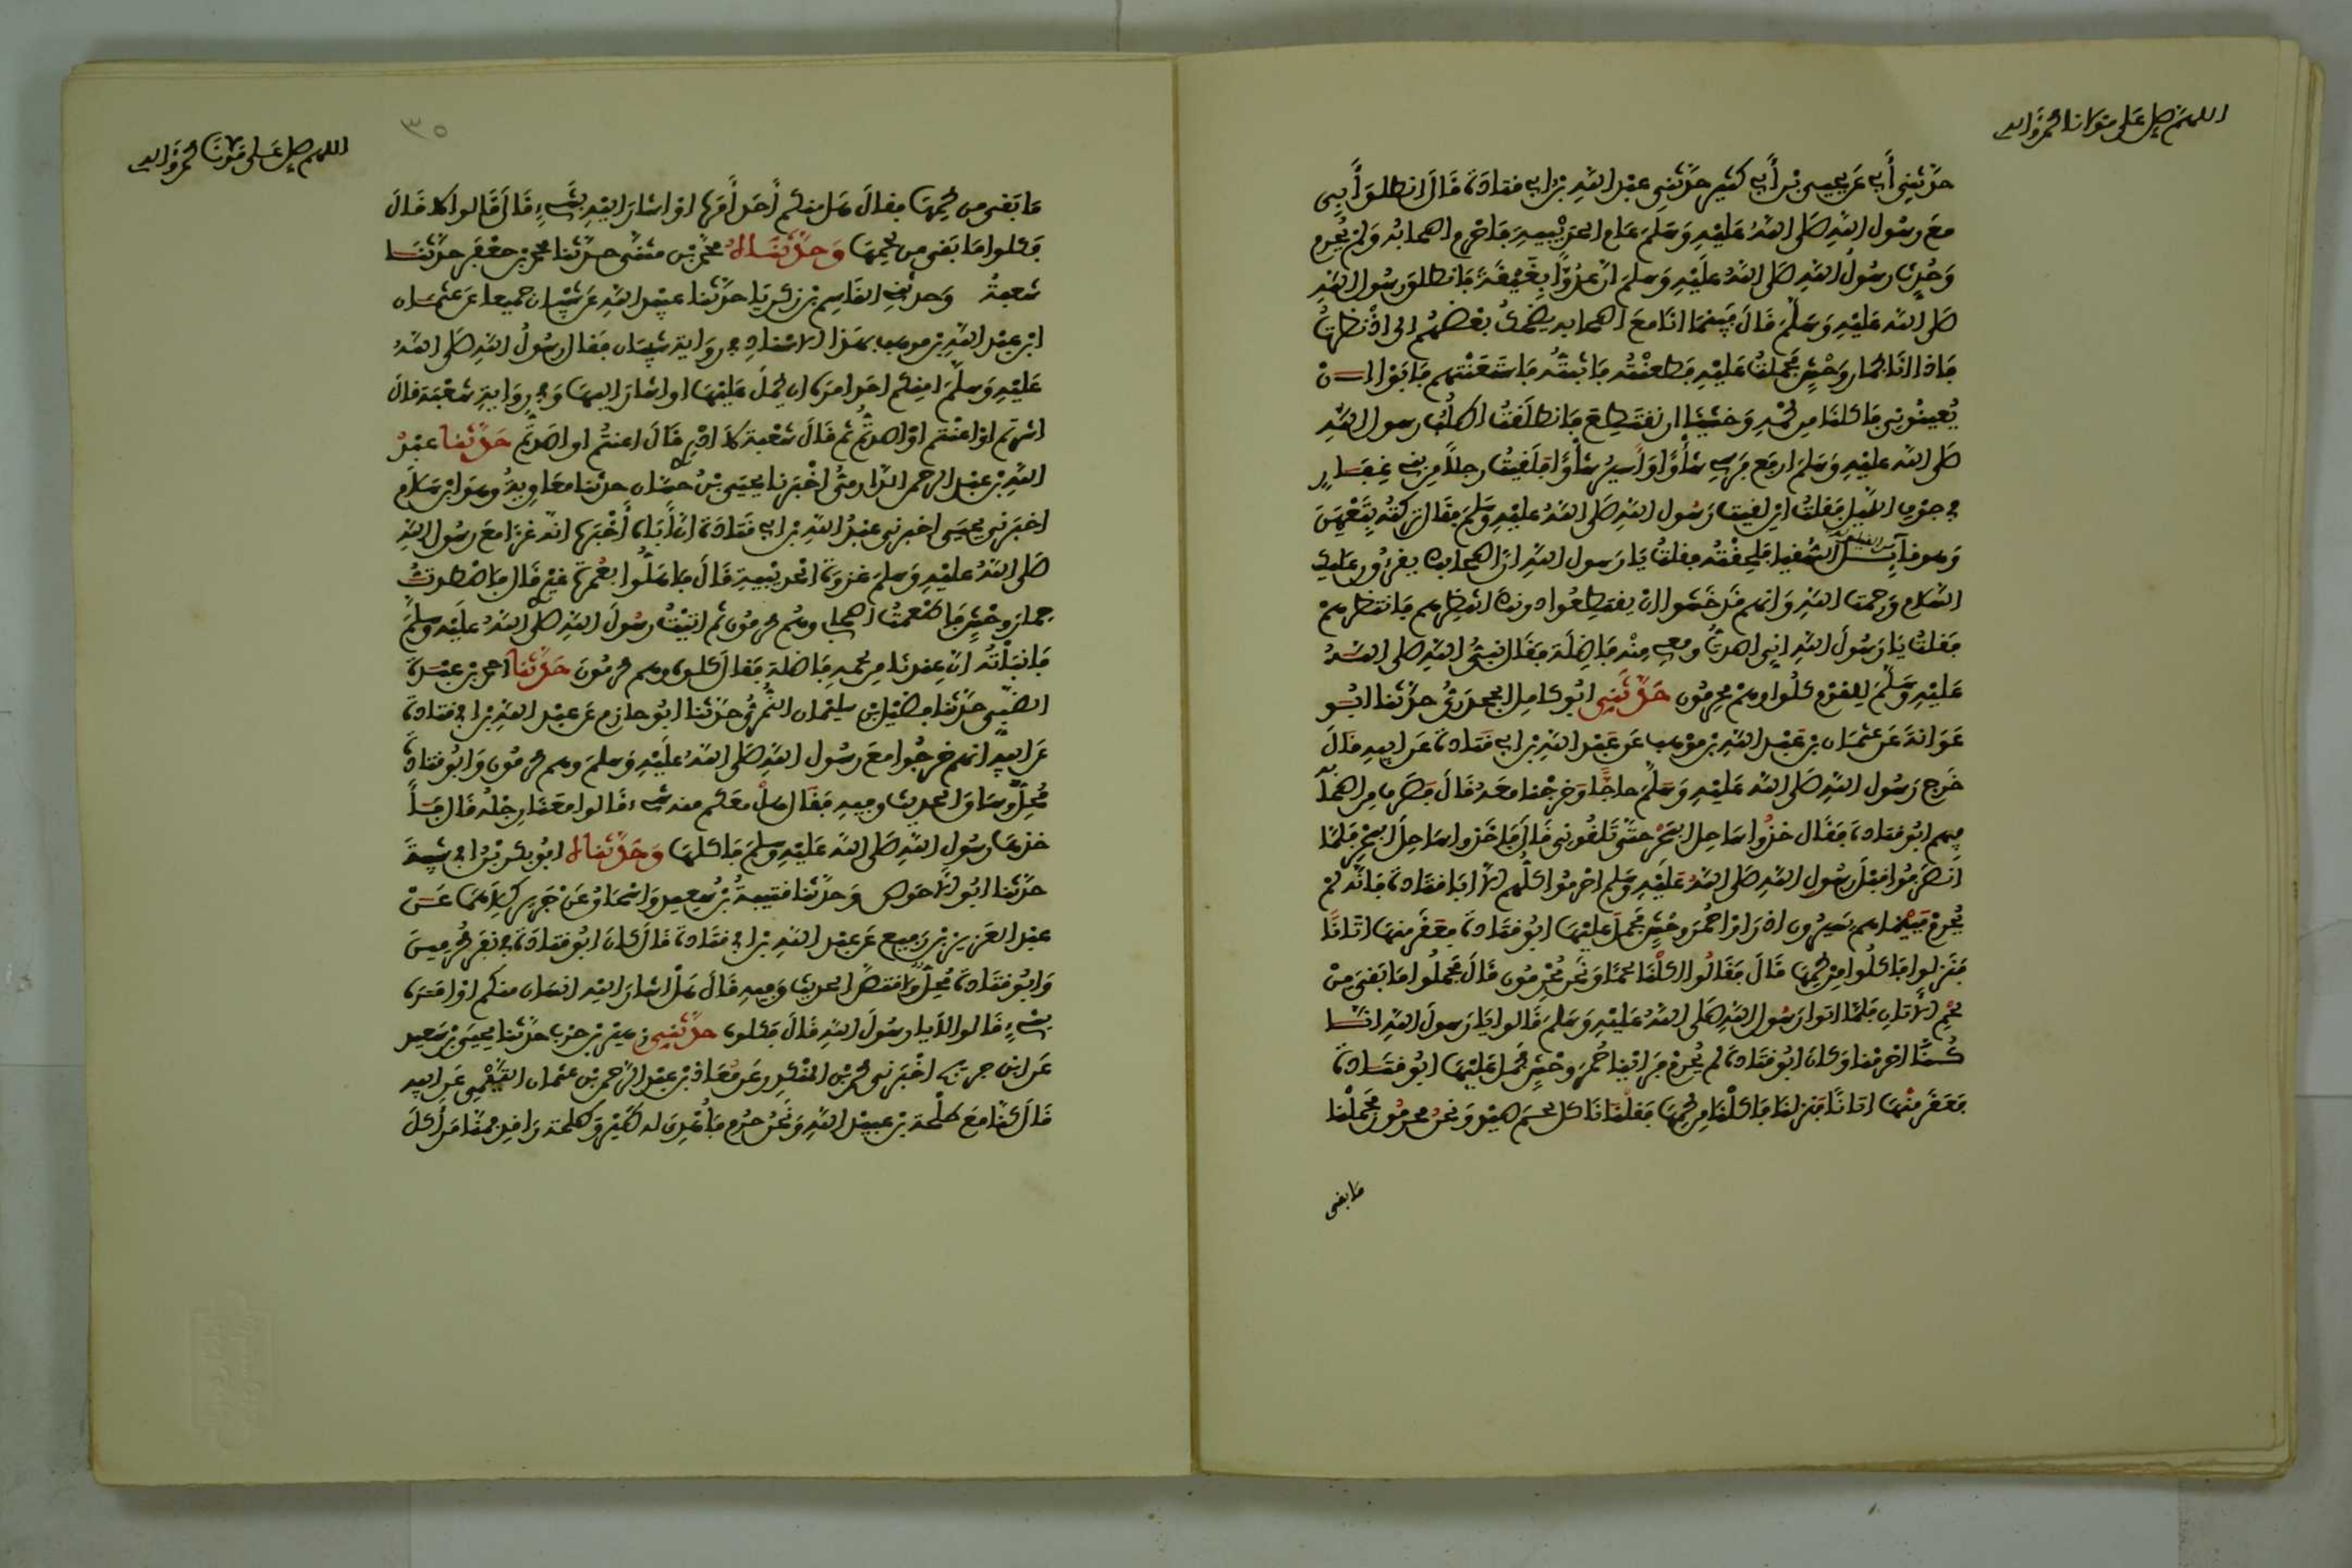 اللهم صل على مولانا محمد وآله
حدثني أبي عن يحيى بن أبي كثير حدثني عبد الله بن أبي قتادة قال انطلق أبي
مع رسول الله صلى الله عليه وسلم عام الحديبية فأحرم أصحابه ولم يحرم
وحدث رسول الله صلى الله عليه وسلم أن عدوا بغيقة فانطلق رسول الله
صلى الله عليه وسلم قال فبينما أنا مع أصحابه يضحك بعضهم إلى إذ نظرت
فإذا أنا بحمار وحش فحملت عليه فطعنته فأثبته فاستعنتهم فأبوا أن
يعينوني فأكلنا من لحمه وخشينا أن نقتطع فانطلقت أطلب رسول الله
صلى الله عليه وسلم أرفع فرسي شأوا وأسير شأوا فلقيت رجلا من بني غفار
في جوف الليل فقلت أين لقيت رسول الله صلى الله عليه وسلم فقال تركته بتعهن
وهو قائل السقيا فلحقته فقلت يا رسول الله إن أصحابك يقرءون عليك
السلام ورحمة الله وإنهم قد خشوا أن يقتطعوا دونك انتظرهم فانتظرهم
فقلت يا رسول الله إني اصدت ومعي منه فاضلة فقال النبي صلى الله
عليه وسلم للقوم كلوا وهم محرمون حدثني أبو كامل الجحدري حدثنا أبو
عوانة عن عثمان بن عبد الله بن موهب عن عبد الله بن أبي قتادة عن أبيه قال
خرج رسول الله صلى الله عليه وسلم حاجا وخرجنا معه قال فصرف من أصحابه
فيهم أبو قتادة فقال خذوا ساحل البحر حتى تلقوني قال فأخذوا ساحل البحر فلما
انصرفوا قبل رسول الله صلى الله عليه وسلم أحرموا كلهم إلا أبا قتادة فإنه لم
يحرم فبينما هم يسيرون إذ رأوا حمر وحش فحمل عليها أبو قتادة فعقر منها أتانا
فنزلوا فأكلوا من لحمها قال فقالوا أكلنا لحما ونحن محرمون قال فحملوا ما بقي من
لحم الأتان فلما أتوا رسول الله صلى الله عليه وسلم قالوا يا رسول الله إنا
كنا أحرمنا وكان أبو قتادة لم يحرم فرأينا حمر وحش فحمل عليها أبو قتادة
فعقر منها أتانا فنزلنا فأكلنا من لحمها فقلنا نأكل لحم صيد ونحن محرمون فحملنا
ما بقي
اللهم صل على مولانا محمد وآله
٣٥
ما بقي من لحمها فقال هل منكم أحد أمره أو أشار إليه بشيء قال قالوا لا قال
فكلوا ما بقي من لحمها وحدثناه محمد بن مثنى حدثنا محمد بن جعفر حدثنا
شعبة وحدثني القاسم بن زكريا حدثنا عبيد الله عن شيبان جميعا عن عثمان
ابن عبد الله بن موهب بهذا الإسناد في رواية شيبان فقال رسول الله صلى الله
عليه وسلم أمنكم أحد أمره أن يحمل عليها أو أشار إليها وفي رواية شعبة قال
أشرتم أو أعنتم أو أصدتم قال شعبة لا أدري قال أعنتم أو أصدتم حدثنا عبد
الله بن عبد الرحمن الدارمي أخبرنا يحيى بن حسان حدثنا معاوية وهو ابن سلام
أخبرني يحيى أخبرني عبد الله بن أبي قتادة أن أباه أخبره أنه غزا مع رسول الله
صلى الله عليه وسلم غزوة الحديبية قال فأهلوا بعمرة غيري قال فاصطدت
حمار وحش فأطعمت أصحابي وهم محرمون ثم أتيت رسول الله صلى الله عليه وسلم
فأنبأته أن عندنا من لحمه فاضلة فقال كلوه وهم محرمون حدثنا أحمد بن عبدة
الضبي حدثنا فضيل بن سليمان النمري حدثنا أبو حازم عن عبد الله بن أبي قتادة
عن أبيه أنهم خرجوا مع رسول الله صلى الله عليه وسلم وهم محرمون وأبو قتادة
محل وساق الحديث وفيه فقال هل معكم منه شيء قالوا معنا رجله قال
فأخذها رسول الله صلى الله عليه وسلم فأكلها وحدثناه أبو بكر بن أبي شيبة
حدثنا أبو الأحوص وحدثنا قتيبة بن سعيد وإسحاق عن جرير كلاهما عن
عبد العزيز بن رفيع عن عبد الله بن أبي قتادة قال كان أبو قتادة في نفر محرمين
وأبو قتادة محل واقتص الحديث وفيه قال هل أشار إليه إنسان منكم أو أمره
بشيء قالوا لا يا رسول الله قال فكلوه حدثني زهير بن حرب حدثنا يحيى بن سعيد
عن ابن جريج أخبرني محمد بن المنكدر عن معاذ بن عبد الرحمن بن عثمان التيمي عن أبيه
قال كنا مع طلحة بن عبيد الله ونحن حرم فأهدي له طير وطلحة راقد فمنا من أكل